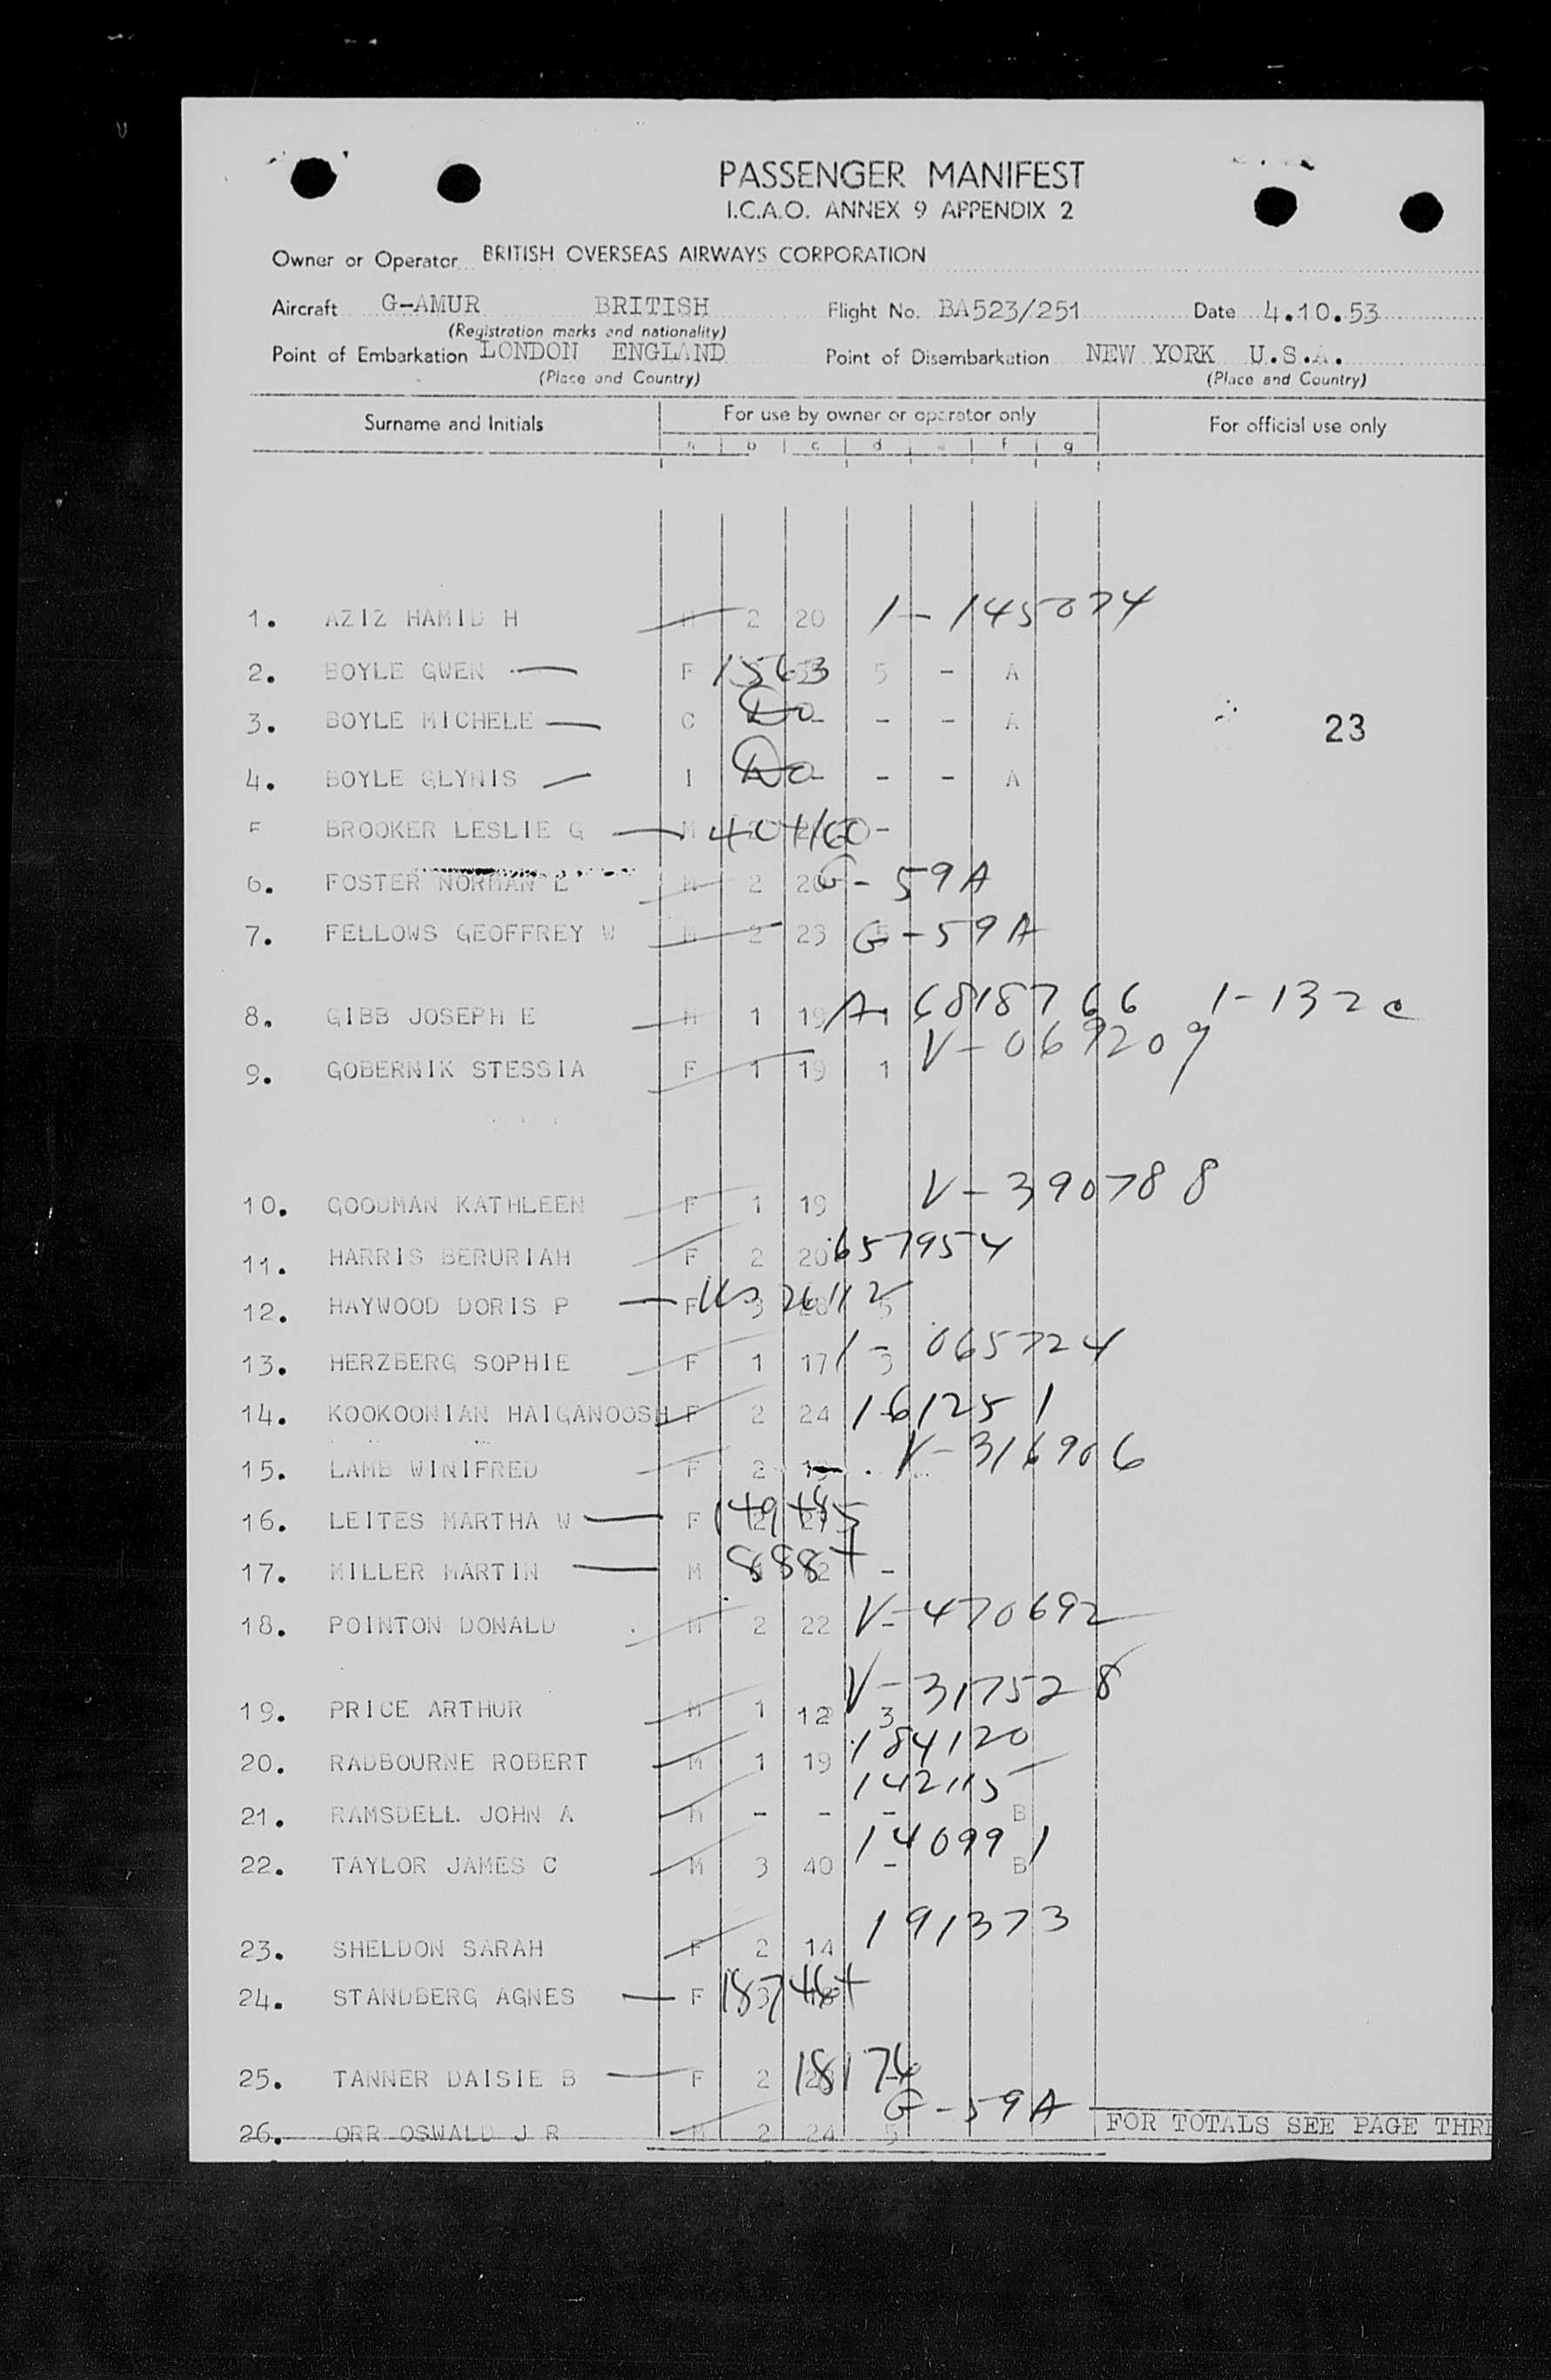 PASSENGER MANIFEST
I.C.A.O. ANNEX 9 APPENDIX 2
Owner or Operator BRITISH OVERSEAS AIRWAYS CORPORATION
Aircraft G-AMUR BRITISH Flight No. BA523/251 Date 4.10.53
(Registration marks and nationality)
Point of Embarkation LONDON ENGLAND Point of Disembarkation NEW YORK U.S.A.
(Place and Country) (Place and Country)
Surname and Initials For use by owner or operator only For official use only
a b c d e f g
1. AZIZ HAMID H M 2 20 1-145074
2. BOYLE GWEN F 1563 5 - A
3. BOYLE MICHELE C Do - - - A
23
4. BOYLE GLYNIS I Do - - - A
BROOKER LESLIE G M -
6. FOSTER NORMAN E M 2 20 G-59A
7. FELLOWS GEOFFREY W M 2 23 5 G-59A
8. GIBB JOSEPH E M 1 19 1 A-6818766 1-132c
9. GOBERNIK STESSIA F 1 19 1 V-069209
10. GOODMAN KATHLEEN F 1 19 V-390788
11. HARRIS BERURIAH F 2 20 657954
12. HAYWOOD DORIS P F 3 5
13. HERZBERG SOPHIE F 1 17 3 1-065724
14. KOOKOONIAN HAIGANOOSH F 2 24 161251
15. LAMB WINIFRED F 2 V-316906
16. LEITES MARTHA W F 2
17. MILLER MARTIN M -
18. POINTON DONALD M 2 22 - V-470692
19. PRICE ARTHUR M 1 12 3 V-317528
20. RADBOURNE ROBERT M 1 19 184120
21. RAMSDELL JOHN A M - - - B 142115
22. TAYLOR JAMES C M 3 40 - B 140991
23. SHELDON SARAH F 2 14 191373
24. STANDBERG AGNES F 3
25. TANNER DAISIE B F 2
26. ORR OSWALD J R M 2 24 5 G-59A
FOR TOTALS SEE PAGE THRE